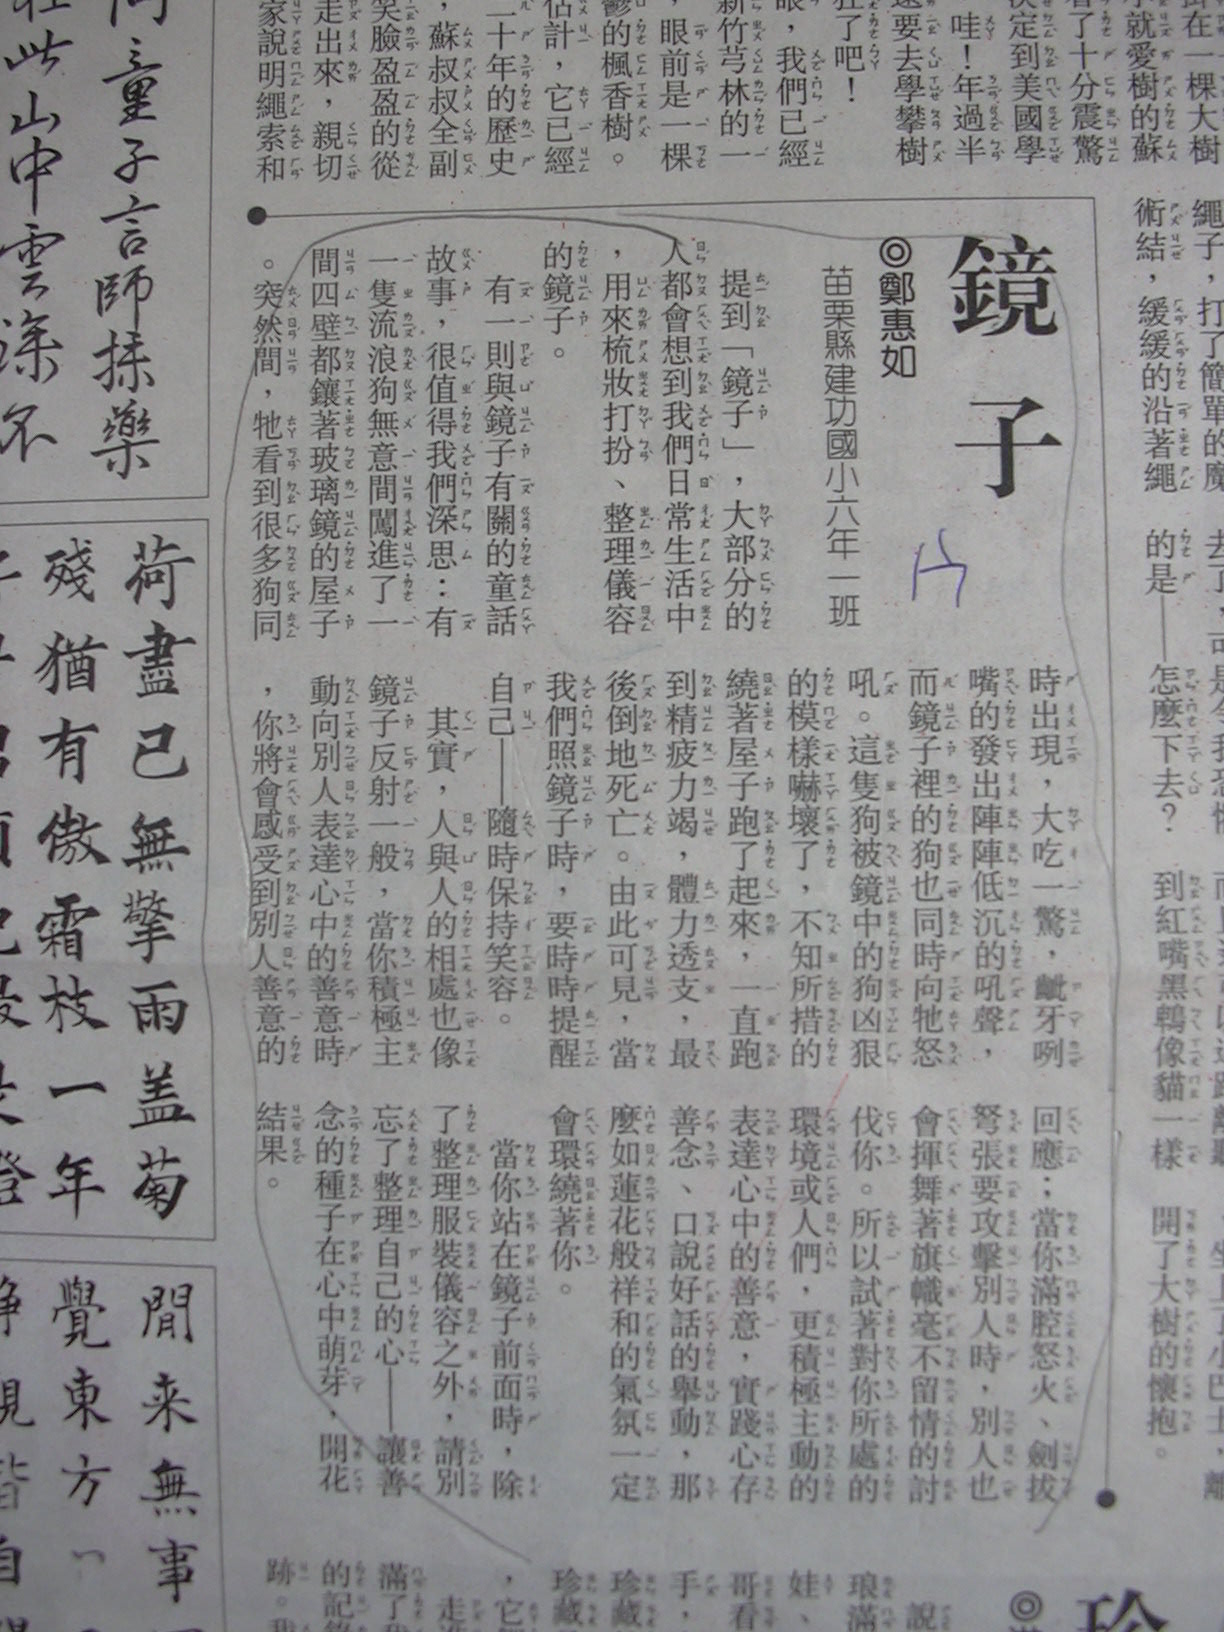 鏡子
◎鄭惠如
苗栗縣建功國小六年一班
提到「鏡子」，大部分的
人都會想到我們日常生活中
，用來梳妝打扮、整理儀容
的鏡子。
有一則與鏡子有關的童話
故事，很值得我們深思：有
一隻流浪狗無意間闖進了一
間四壁都鑲著玻璃鏡的屋子
。突然間，牠看到很多狗同
時出現，大吃一驚，齜牙咧
嘴的發出陣陣低沉的吼聲，
而鏡子裡的狗也同時向牠怒
吼。這隻狗被鏡中的狗凶狠
的模樣嚇壞了，不知所措的
繞著屋子跑了起來，一直跑
到精疲力竭，體力透支，最
後倒地死亡。由此可見，當
我們照鏡子時，要時時提醒
自己——隨時保持笑容。
其實，人與人的相處也像
鏡子反射一般，當你積極主
動向別人表達心中的善意時
，你將會感受到別人善意的
回應；當你滿腔怒火、劍拔
弩張要攻擊別人時，別人也
會揮舞著旗幟毫不留情的討
伐你。所以試著對你所處的
環境或人們，更積極主動的
表達心中的善意，實踐心存
善念、口說好話的舉動，那
麼如蓮花般祥和的氣氛一定
會環繞著你。
當你站在鏡子前面時，除
了整理服裝儀容之外，請別
忘了整理自己的心——讓善
念的種子在心中萌芽，開花
結果。
掛在一棵大樹
就愛樹的蘇
了十分震驚
決定到美國學
哇！年過半
還要去學攀樹
狂了吧！
眼，我們已經
新竹芎林的一
，眼前是一棵
鬱的楓香樹。
估計，它已經
二十年的歷史
，蘇叔叔全副
笑臉盈盈的從
走出來，親切
家說明繩索和
繩子，打了簡單的魔
術結，緩緩的沿著繩
的是——怎麼下去？
到紅嘴黑鵯像貓一樣
開了大樹的懷抱。
童子言師採藥
此山中雲深不
荷盡已無擎雨蓋菊
殘猶有傲霜枝一年
閒来無事
覺東方
珍
說
琅滿
娃、
哥看
手，
珍藏
珍藏
，它
走進
滿了
的記
跡。我